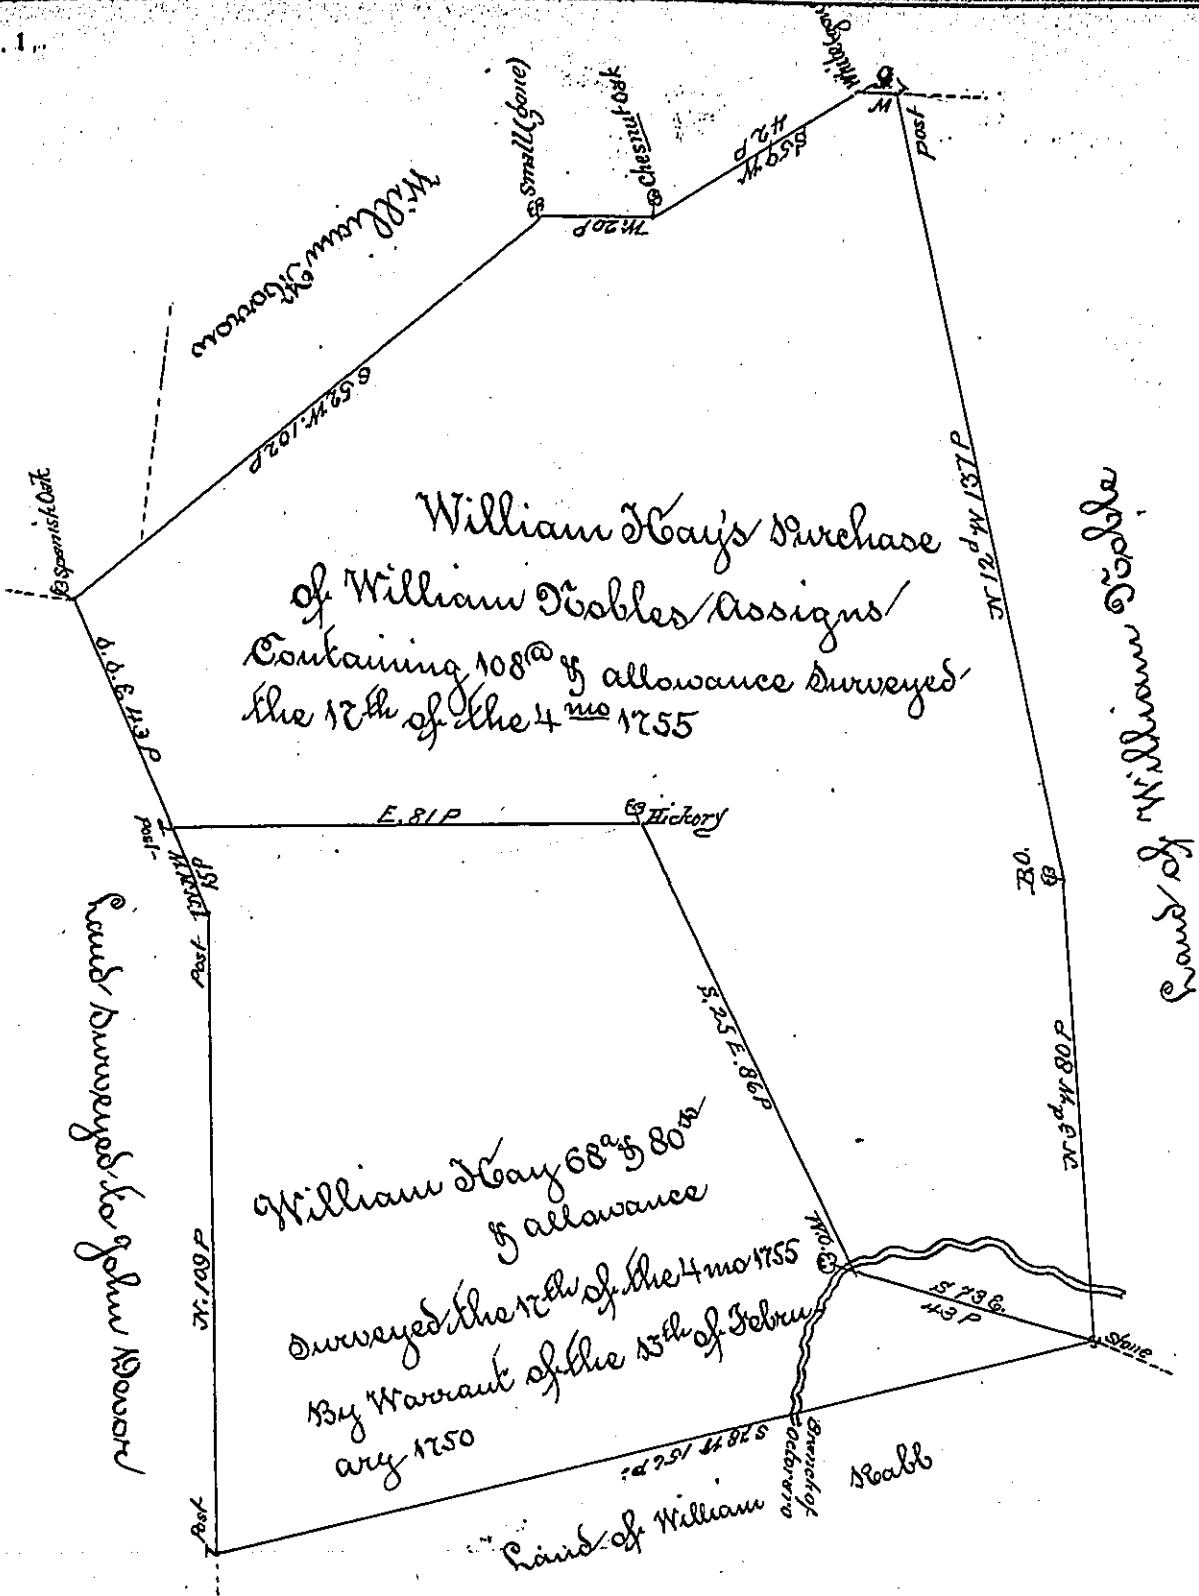 . 1
Small (gone)
Chesnut Oak
Post
S 59 W
42 P
W. 20 P
William Morrow
S 52 W. 102 P
Spanish Oak
William Hay's Purchase
of William Nobles Assigns
Containing 108@ & allowance Surveyed
the 17th of the 4mo 1755
N 12 W 137 P
Land of William Noble
S.S.E. 43 P
Post
E. 81 P
Hickory
15 P
Post
B.O.
Land Surveyed to John Devor
S. 25 E. 86 P
N 3 W 80 P
William Hay 68a & 80
& allowance
Surveyed the 17th of the 4 mo 1755
By Warrant of the 13th of Febru-
ary 1750
W.O.
S 73 E.
43 P
Stone
N. 109 P
S 78 W 156 p:
Branch of
Octoraro
Post
Land of William Rabb